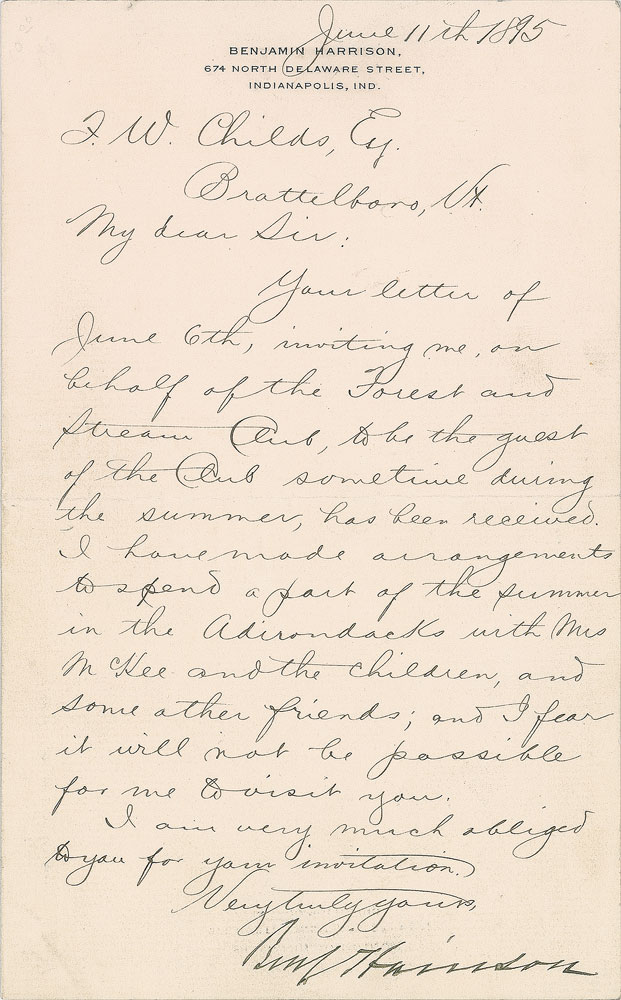 June 11th 1895
BENJAMIN HARRISON,
674 NORTH DELAWARE STREET,
INDIANAPOLIS, IND.
F. W. Childs, Esq.
Brattelboro, Vt.
My dear Sir:
Your letter of
June 6th, inviting me, on
behalf of the Forest and
Stream Club, to be the guest
of the Club sometime during
the summer, has been received.
I have made arrangements
to spend a part of the summer
in the Adirondacks with Mrs
McKee and the children, and
some other friends; and I fear
it will not be possible
for me to visit you.
I am very much obliged
to you for your invitation.
Very truly yours,
Benj Harrison